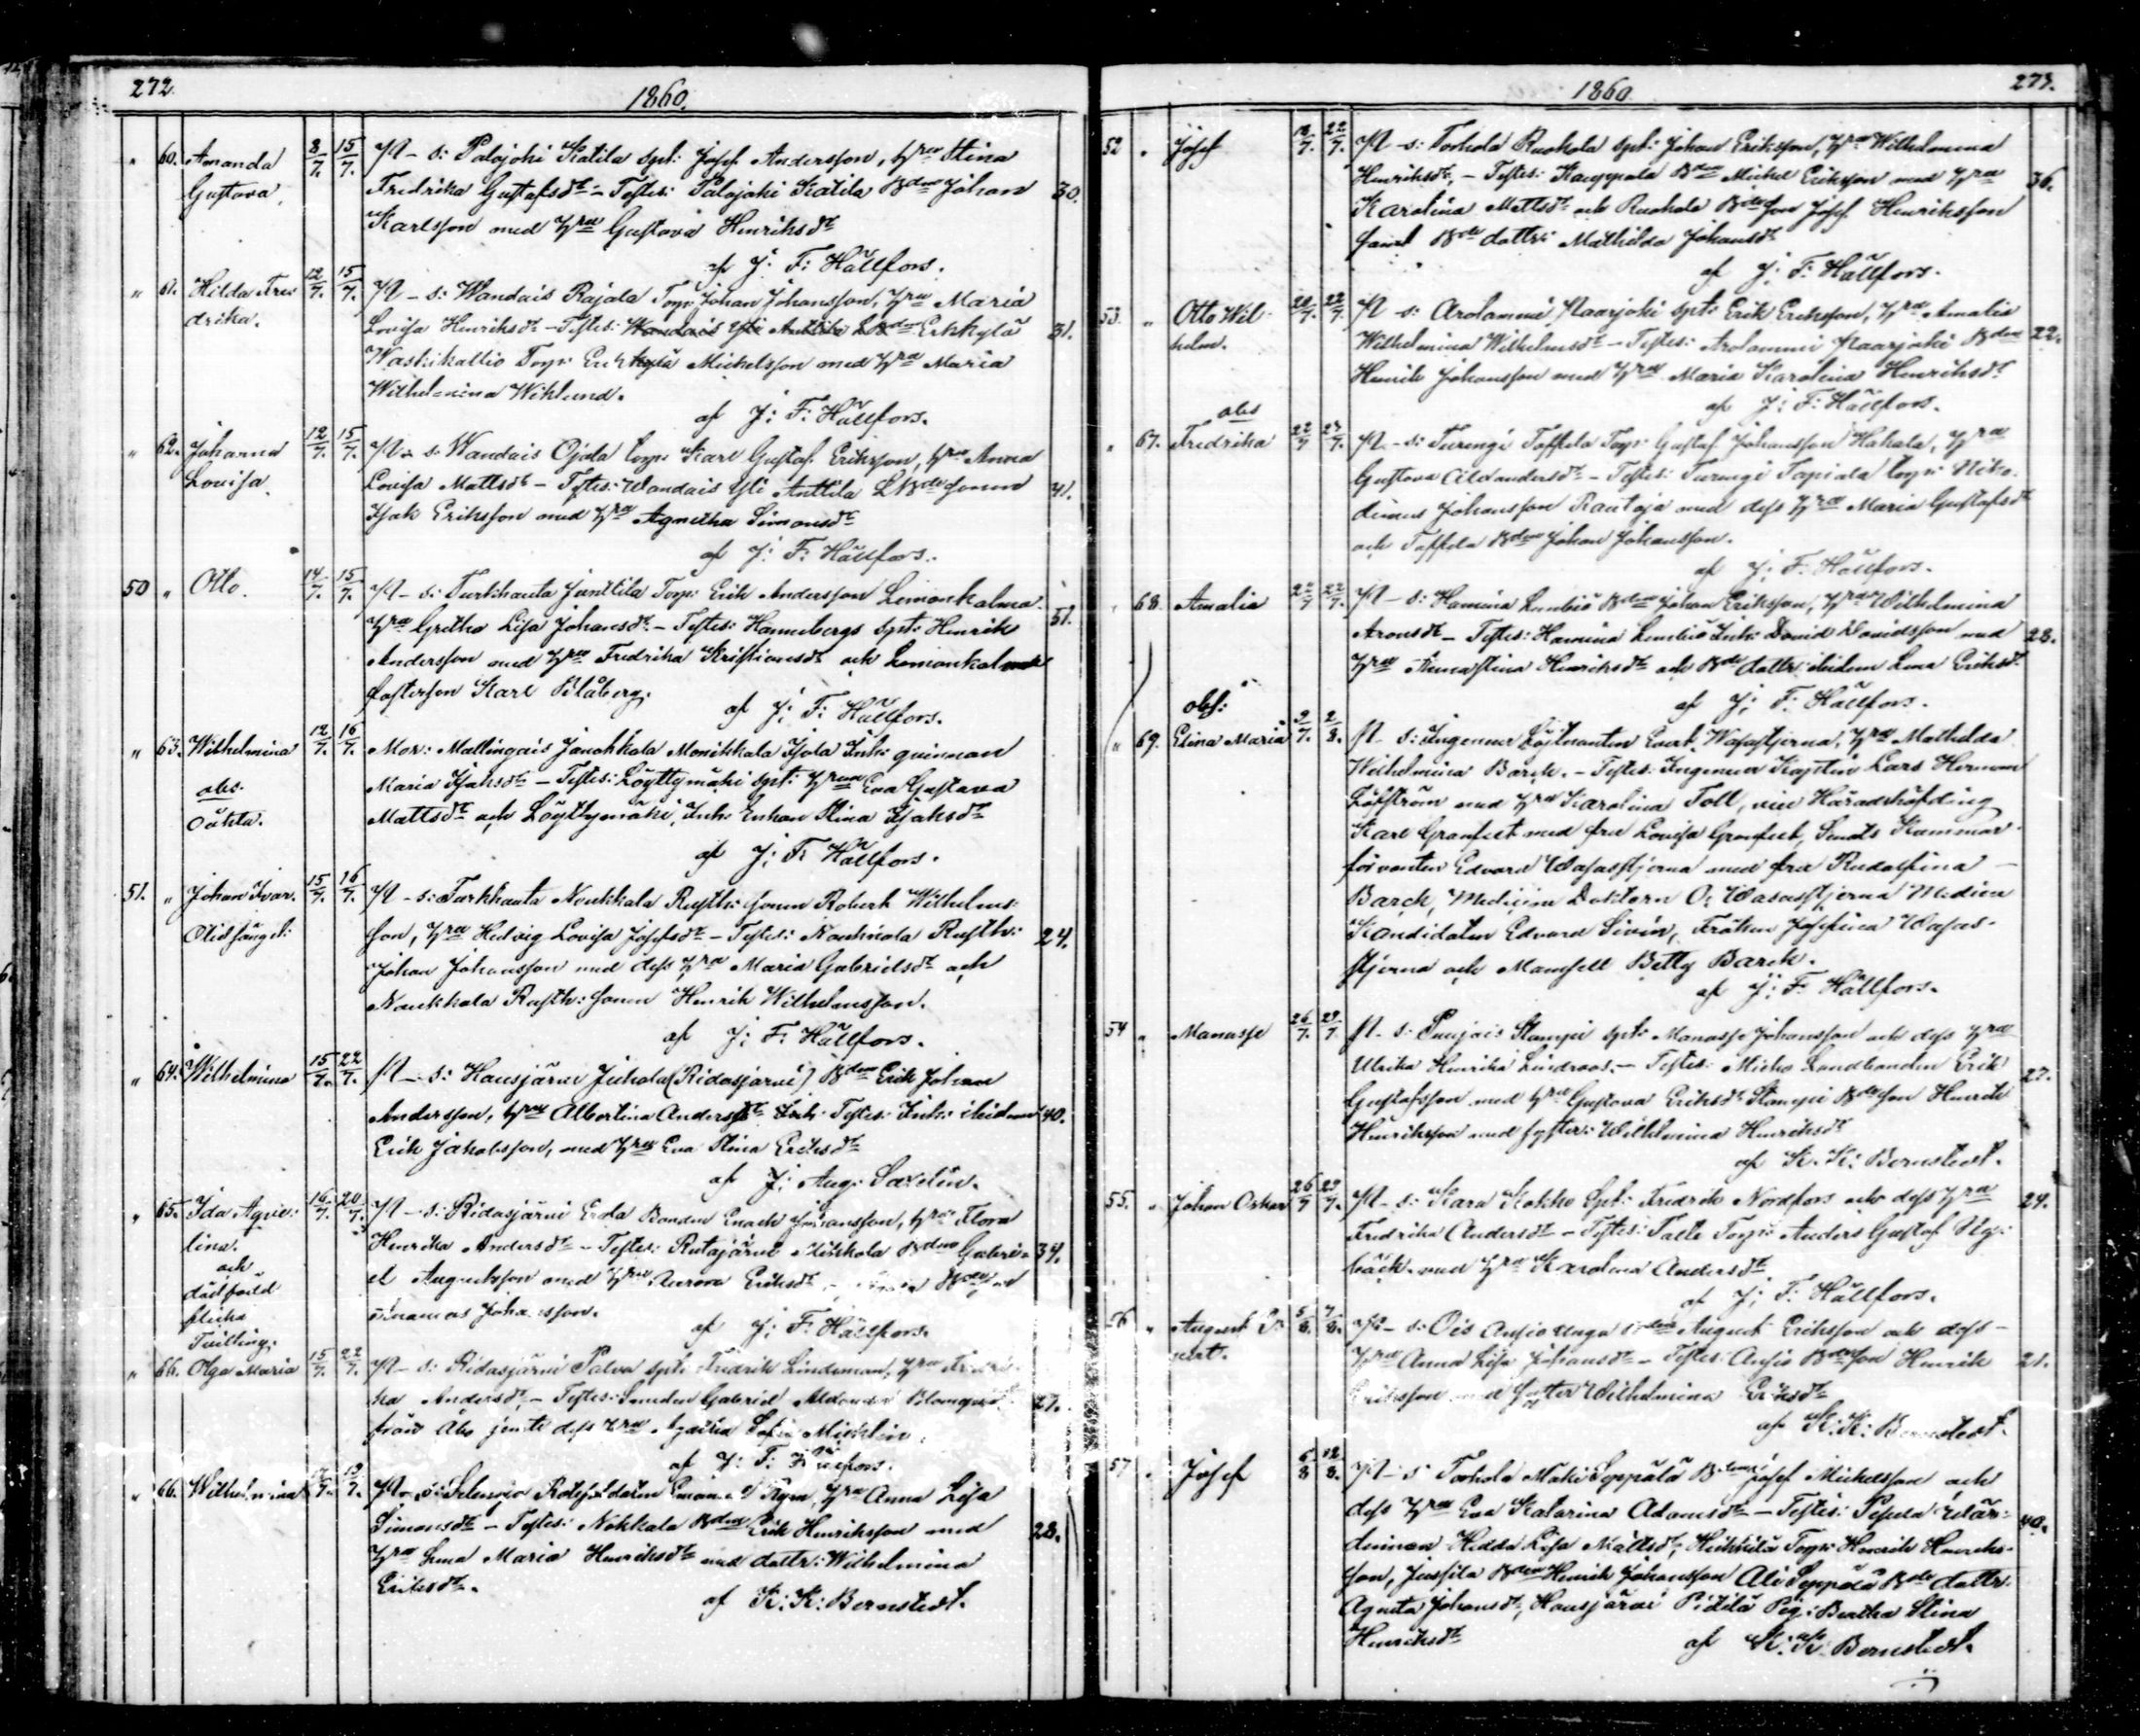 272.
1860.
" 60. Amanda 8/7. 15/7. Pt - s: Palojoki Katila spt: Josef Andersson, hru Stina
Gustava, Fredrika Gustafsdr - Testes: Palojoki Katila Bdn Johan 30.
Karlsson med hru Gustava Henriksdr
af J: F: Hällfors.
" 61. Hilda Fre- 12/7. 15/7. Pt - s: Wandais Rajala Torp: Johan Johansson, hru Maria
drika. Lovisa Henriksdr - Testes: Erkkylä 31.
Waskikallio Torp: Mickelsson med hru Maria
Wilhelmina Wiklund.
af J: F: Hällfors.
" 62. Johanna 12/7. 15/7. Pt - s: Wandais Ojala torp: Karl Gustaf Eriksson, hru Anna
Lovisa. Lovisa Mattsdr - Testes: Wandais Yli Anttila sonen 41.
Isak Eriksson med hru Agnetha Simonsdr
af J: F: Hällfors.
50 " Otto. 14/7. 15/7. Pt - s: Turkhauta Junttila Torp: Erik Andersson Limonkalma
hru Gretha Lisa Johansdr. - Testes: Hannebergs spt: Henrik 51.
Andersson med hru Fredrika Kristiansdr och
fosterson Karl Blåberg.
af J: F: Hällfors.
" 63. Wilhelmina 12/7. 16/7. Mor: Mallinkais Janakkala Monikkala Isola Inh: quinnan
obs. Maria Isaksdr - Testes: Löyttymäki spt: hrun Eva Gustava
oäkta. Mattsdr och Löyttymäki Inh: Enkan Stina Isaksdr
af J: F: Hällfors.
51. " Johan Ivar. 15/7. 16/7. Pt - s: Turkhauta Noukkala Rusth: sonen Robert Wilhelms-
son, hru Hedvig Lovisa Josefsdr - Testes: Noukkala Rusth: 24.
Johan Johansson med dess hru Maria Gabrielsdr och
Noukkala Rusth: sonen Henrik Wilhelmsson.
af J: F: Hällfors.
" 64. Wilhelmina 15/7. 22/7. Pt - s: Hausjärvi Juhola (Ridasjärvi) Bdn Erik Johan
Andersson, hru Albertina Andersdr Testes: Inh: ibidem 40.
Erik Jakobsson, med hru Eva Stina Eriksdr
af J: Aug: Saxelin.
" 65. Ida Agve- 16/7. 20/7. Pt - s: Ridasjärvi Erola Bonden Enoch Johansson, hru Flora
lina. Henrika Andersdr - Testes: Mikkola Bdn Gabri- 34.
och el Augustsson med hru Aurora Eriksdr
dödfödd Johansson.
flicka
Tvilling. af J: F: Hällfors.
" 66. Olga Maria 15/7. 22/7. Pt - s: Ridasjärvi Palva spt: Fredrik Lindeman, hru Fredri-
ka Andersdr - Testes: Smeden Gabriel Alexander Blomqvist 27.
från Åbo jemte dess hru Sofia
af J: F: Hällfors.
" 66. Wilhelmina 7. 7. Pt - s: hru Anna Lisa
Simonsdr - Testes: Nokkala Bdn Erik Henriksson med 28.
hru Lena Maria Henriksdr med dottr: Wilhelmina
Eriksdr.
af K: K: Bernstedt.
1860
273.
52 " Josef 18/7. 22/7. Pt - s: Torhola Ruohola spt: Johan Eriksson, hru Wilhelmina
Henriksdr, - Testes: Kauppala Bdn Mickel Eriksson med hru 36.
Karolina Mattsdr och Ruohola Josef Henriksson
samt Bde dottr: Mathilda Johansdr
af J: F: Hällfors.
53. " Otto Wil- 20/7. 22/7. Pt - s: Arolammi Maarjoki spt: Erik Eriksson, hru Amalia
helm. Wilhelmina Wilhelmsdr - Testes: Arolammi Maarjoki Bdn 22.
Henrik Johansson med hru Maria Karolina Henriksdr
af J: F: Hällfors.
obs
" 67. Fredrika 22/7 Pt - s: Turengi Toffila Torp: Gustaf Johansson Hakala, hru
Gustava - Testes: Turengi Tapiala torp: Niko-
demus Johansson Rautoja med dess hru Maria Gustafsdr
och Toffila Bdn Johan Johansson.
af J: F: Hällfors.
" 68. Amalia 22/7 22/7. Pt - s: Hamina Lembiö Bdn Johan Eriksson, hru Wilhelmina
Aronsdr - Testes: Hamina Lembiö Inh: David Davidsson med 28.
hru Annastina Henriksdr och Bde dottr: ibidem Lena Eriksdr.
af J: F: Hällfors.
obs:
" 69. Elina Maria 9/7. 2/8. Pt - s: Ingenieur Löjtnanten Evert Wasastjerna, hru Mathilda
Wilhelmina Barck. - Testes: Ingenieur Kapten Lars Herman
Löfström med hru Karolina Toll, vice Häradshöfding
Karl Granfelt med fru Lovisa Granfelt, Senats Kammar-
förvanten Edvard Wasastjerna med fru Rudolfina
Barck, Medicin Doktorn O: Wasastjerna Medicin
Kandidaten Edvard Sivén, Fröken Josefina Wasas-
stjerna och Mamsell Betty Barck.
af J: F: Hällfors.
54 " Manasse 26/7. 29/7 Pt - s: Puujais Stampi spt: Manasse Johansson och dess hru
Ulrika Henrika Lindroos. - Testes: Landbonden Erik
Gustafsson med hru Gustava Eriksdr Stampi Bdeson Henrik 27.
Henriksson med syster: Wilhelmina Henriksdr
af K: K: Bernstedt.
55. " Johan Oskar 26/7 29/7. Pt - s: Kara Kokko Spt: Fredrik Nordfors och dess hru 24.
Fredrika Andersdr - Testes: Torp: Anders Gustaf
bäck med hru Karolina Andersdr
af J: F: Hällfors.
56 " August 5/8. 7/8. Pt - s: Ois Ansio unga Bdn August Eriksson och dess
hru Anna Lisa Johansdr - Testes: Ansio Bdeson Henrik 21.
Eriksson med syster Wilhelmina Eriksdr
af K: K: Bernstedt.
57 " Josef 6/8 12/8. Pt - s: Torhola Maki Seppälä Bdn Josef Mickelsson och
dess hru Eva Katarina Adamsdr - Testes: 40.
Hedda Lisa Mattsdr, Heikkilä Torp: Henrik Henriks-
son, Jussila Bdn Henrik Johansson Ali Seppälä Bde dottr:
Agneta Johansdr, Hausjärvi Pietilä Pig: Bertha Stina
Henriksdr
af K: K: Bernstedt.